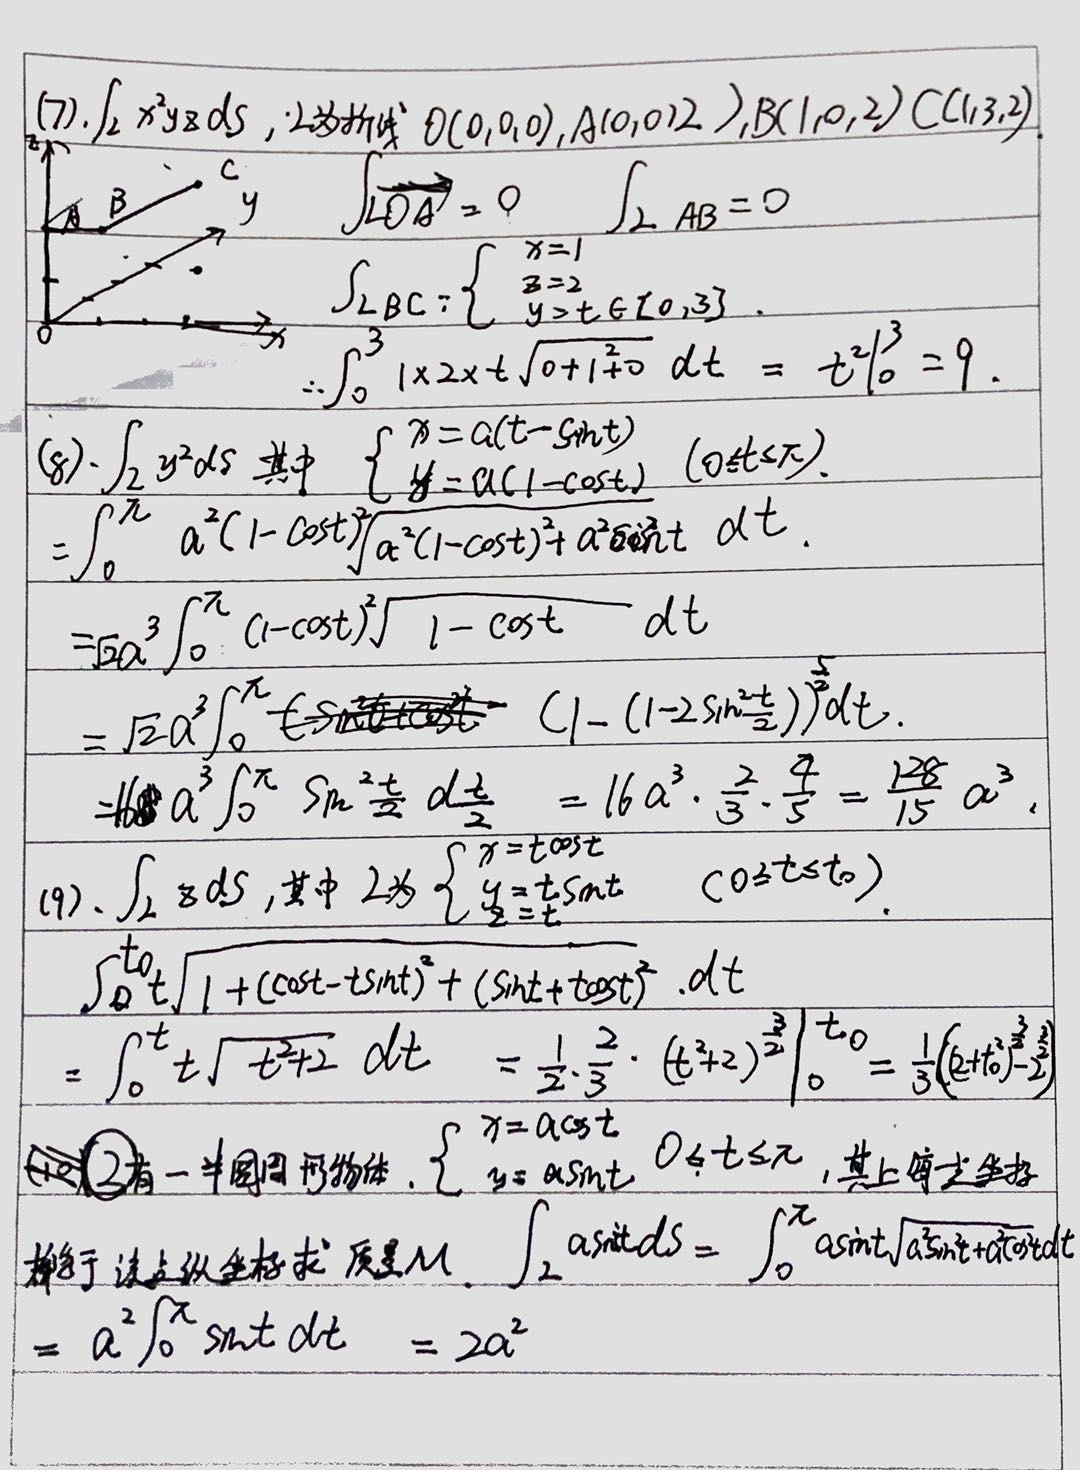 (7). ∫_L x²yz ds, L为折线 O(0,0,0), A(0,0,2), B(1,0,2) C(1,3,2).
z A B C y
∫_L OA = 0 ∫_L AB = 0
O x
∫_L BC: { x=1
z=2
y=t∈[0,3].
∴ ∫₀³ 1×2×t √(0+1²+0) dt = t²|₀³ = 9.
(8). ∫_L y²ds 其中 { x=a(t-sint)
y=a(1-cost) (0≤t≤π).
= ∫₀^π a²(1-cost)² √(a²(1-cost)²+a²sin²t) dt.
= √2a³ ∫₀^π (1-cost)² √(1-cost) dt
= √2a³ ∫₀^π (1-(1-2sin²t/2))^(5/2) dt.
= 16a³ ∫₀^π sin²t/2 d t/2 = 16a³ · 2/3 · 4/5 = 128/15 a³.
(9). ∫_L z ds, 其中 L为 { x=tcost
y=tsint
z=t (0≤t≤t₀).
∫₀^t₀ t √(1+(cost-tsint)²+(sint+tcost)²) . dt
= ∫₀^t t √(t²+2) dt = 1/2 · 2/3 · (t²+2)^(3/2) |₀^t₀ = 1/3((2+t₀²)^(3/2) - 2^(3/2))
② 有一半圆周形物体. { x=acost
y=asint 0≤t≤π, 其上每点坐标
于该点纵坐标求 质量M. ∫_L asint ds = ∫₀^π asint √(a²sin²t+a²cos²t) dt
= a² ∫₀^π sint dt = 2a²